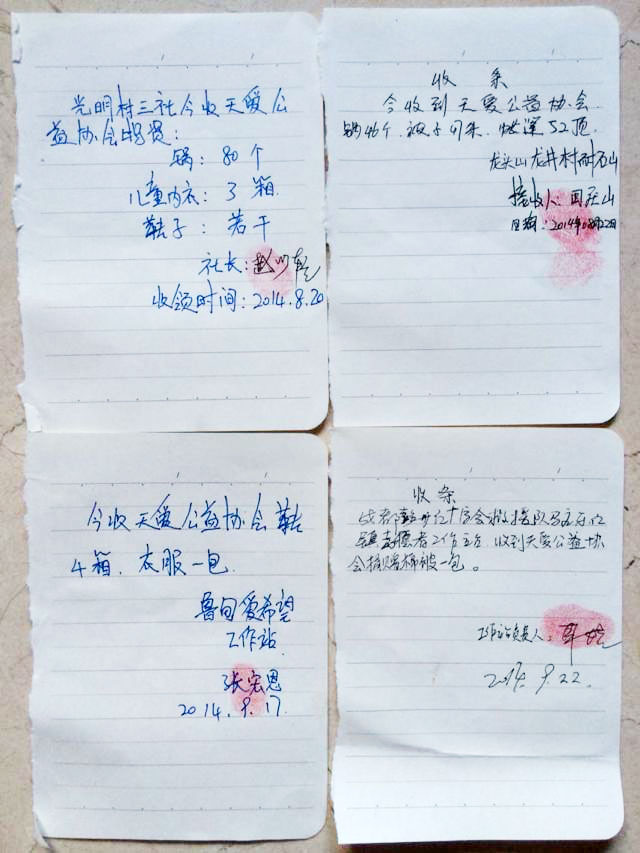 光明村三社今收天爱公
益协会物资:
锅: 80个
儿童内衣: 3箱
鞋子: 若干
社长:赵
收领时间:2014.8.20
收条
今收到天爱公益协会
锅46个.被子 床.帐篷52顶.
龙头山龙井村
接收人:
日期:2014年08月22日
今收天爱公益协会鞋
4箱.衣服一包.
鲁甸爱希望
工作站
张宏恩
2014.9.17.
收条
成都 红十字会救援队
志愿者工作站 收到天爱公益协
会捐赠棉被一包。
工作站负责人:
2014.9.22.